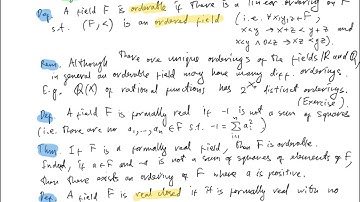 Def. A field F is orderable if there is a linear ordering < on F
s.t. (F,<) is an ordered field (i.e. ∀x,y,z∈F:
x<y → x+z<y+z and
x<y ∧ 0<z → xz<yz).
Rem. Although there are unique orderings of the fields ℝ and ℚ,
in general an orderable field may have many diff. orderings.
E.g. ℚ(X) of rational functions has 2^ℵ₀ distinct orderings.
(Exercise).
Def. A field F is formally real if -1 is not a sum of squares
(i.e. there are no a₁,...,aₙ∈F s.t. -1=Σaᵢ²)
Thm. If F is a formally real field, then F is orderable.
Indeed, if a∈F and -a is not a sum of squares of elements of F,
then there exists an ordering of F where a is positive.
Def. A field F is real closed if it is formally real with no